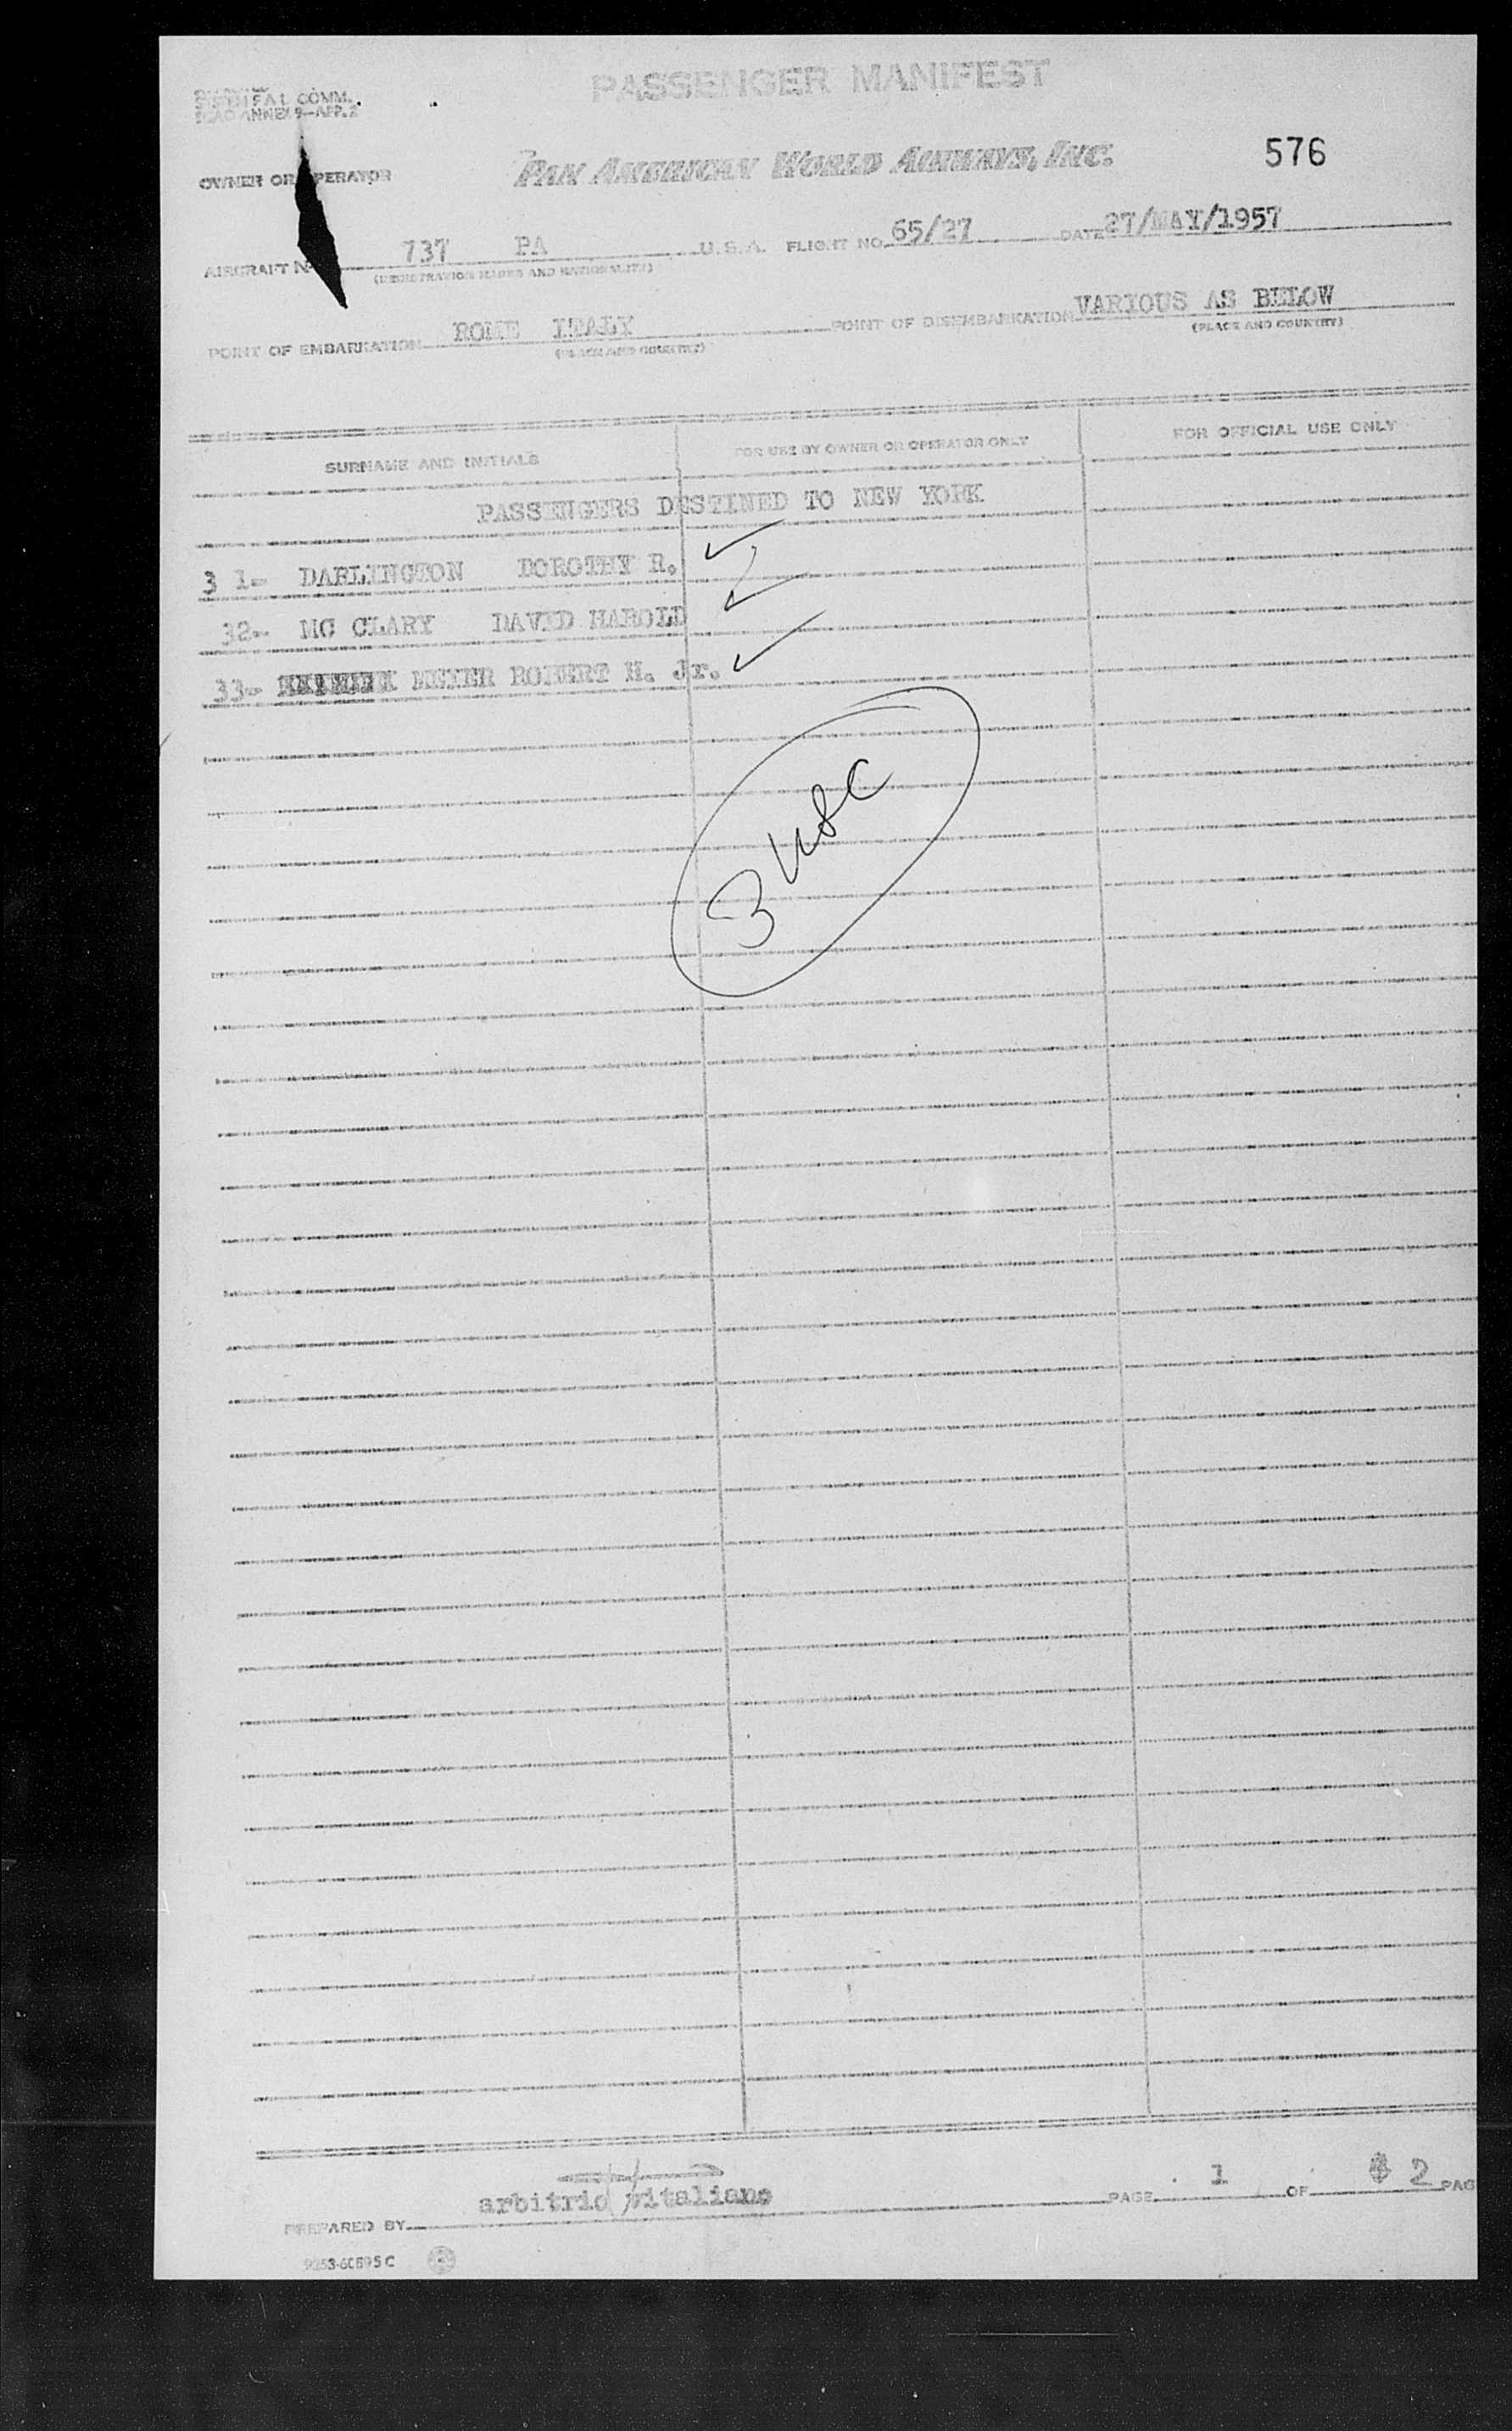 PASSENGER MANIFEST
F A L COMM.
ICAO ANNEX 9—APP. 2
PAN AMERICAN WORLD AIRWAYS, INC.
576
OWNER OR OPERATOR
AIRCRAFT No 737 PA U.S.A. FLIGHT NO. 65/27 DATE 27/MAY/1957
(REGISTRATION MARKS AND NATIONALITY)
POINT OF EMBARKATION ROME ITALY POINT OF DISEMBARKATION VARIOUS AS BELOW
(PLACE AND COUNTRY) (PLACE AND COUNTRY)
SURNAME AND INITIALS FOR USE BY OWNER OR OPERATOR ONLY FOR OFFICIAL USE ONLY
PASSENGERS DESTINED TO NEW YORK
3 1- DARLINGTON DOROTHY R.
32- MC CLARY DAVID HAROLD
33- MEYER ROBERT H. Jr.
3 USC
arbitrio vitaliano
PREPARED BY
PAGE 1 OF 2 PAG
9253-60595 C